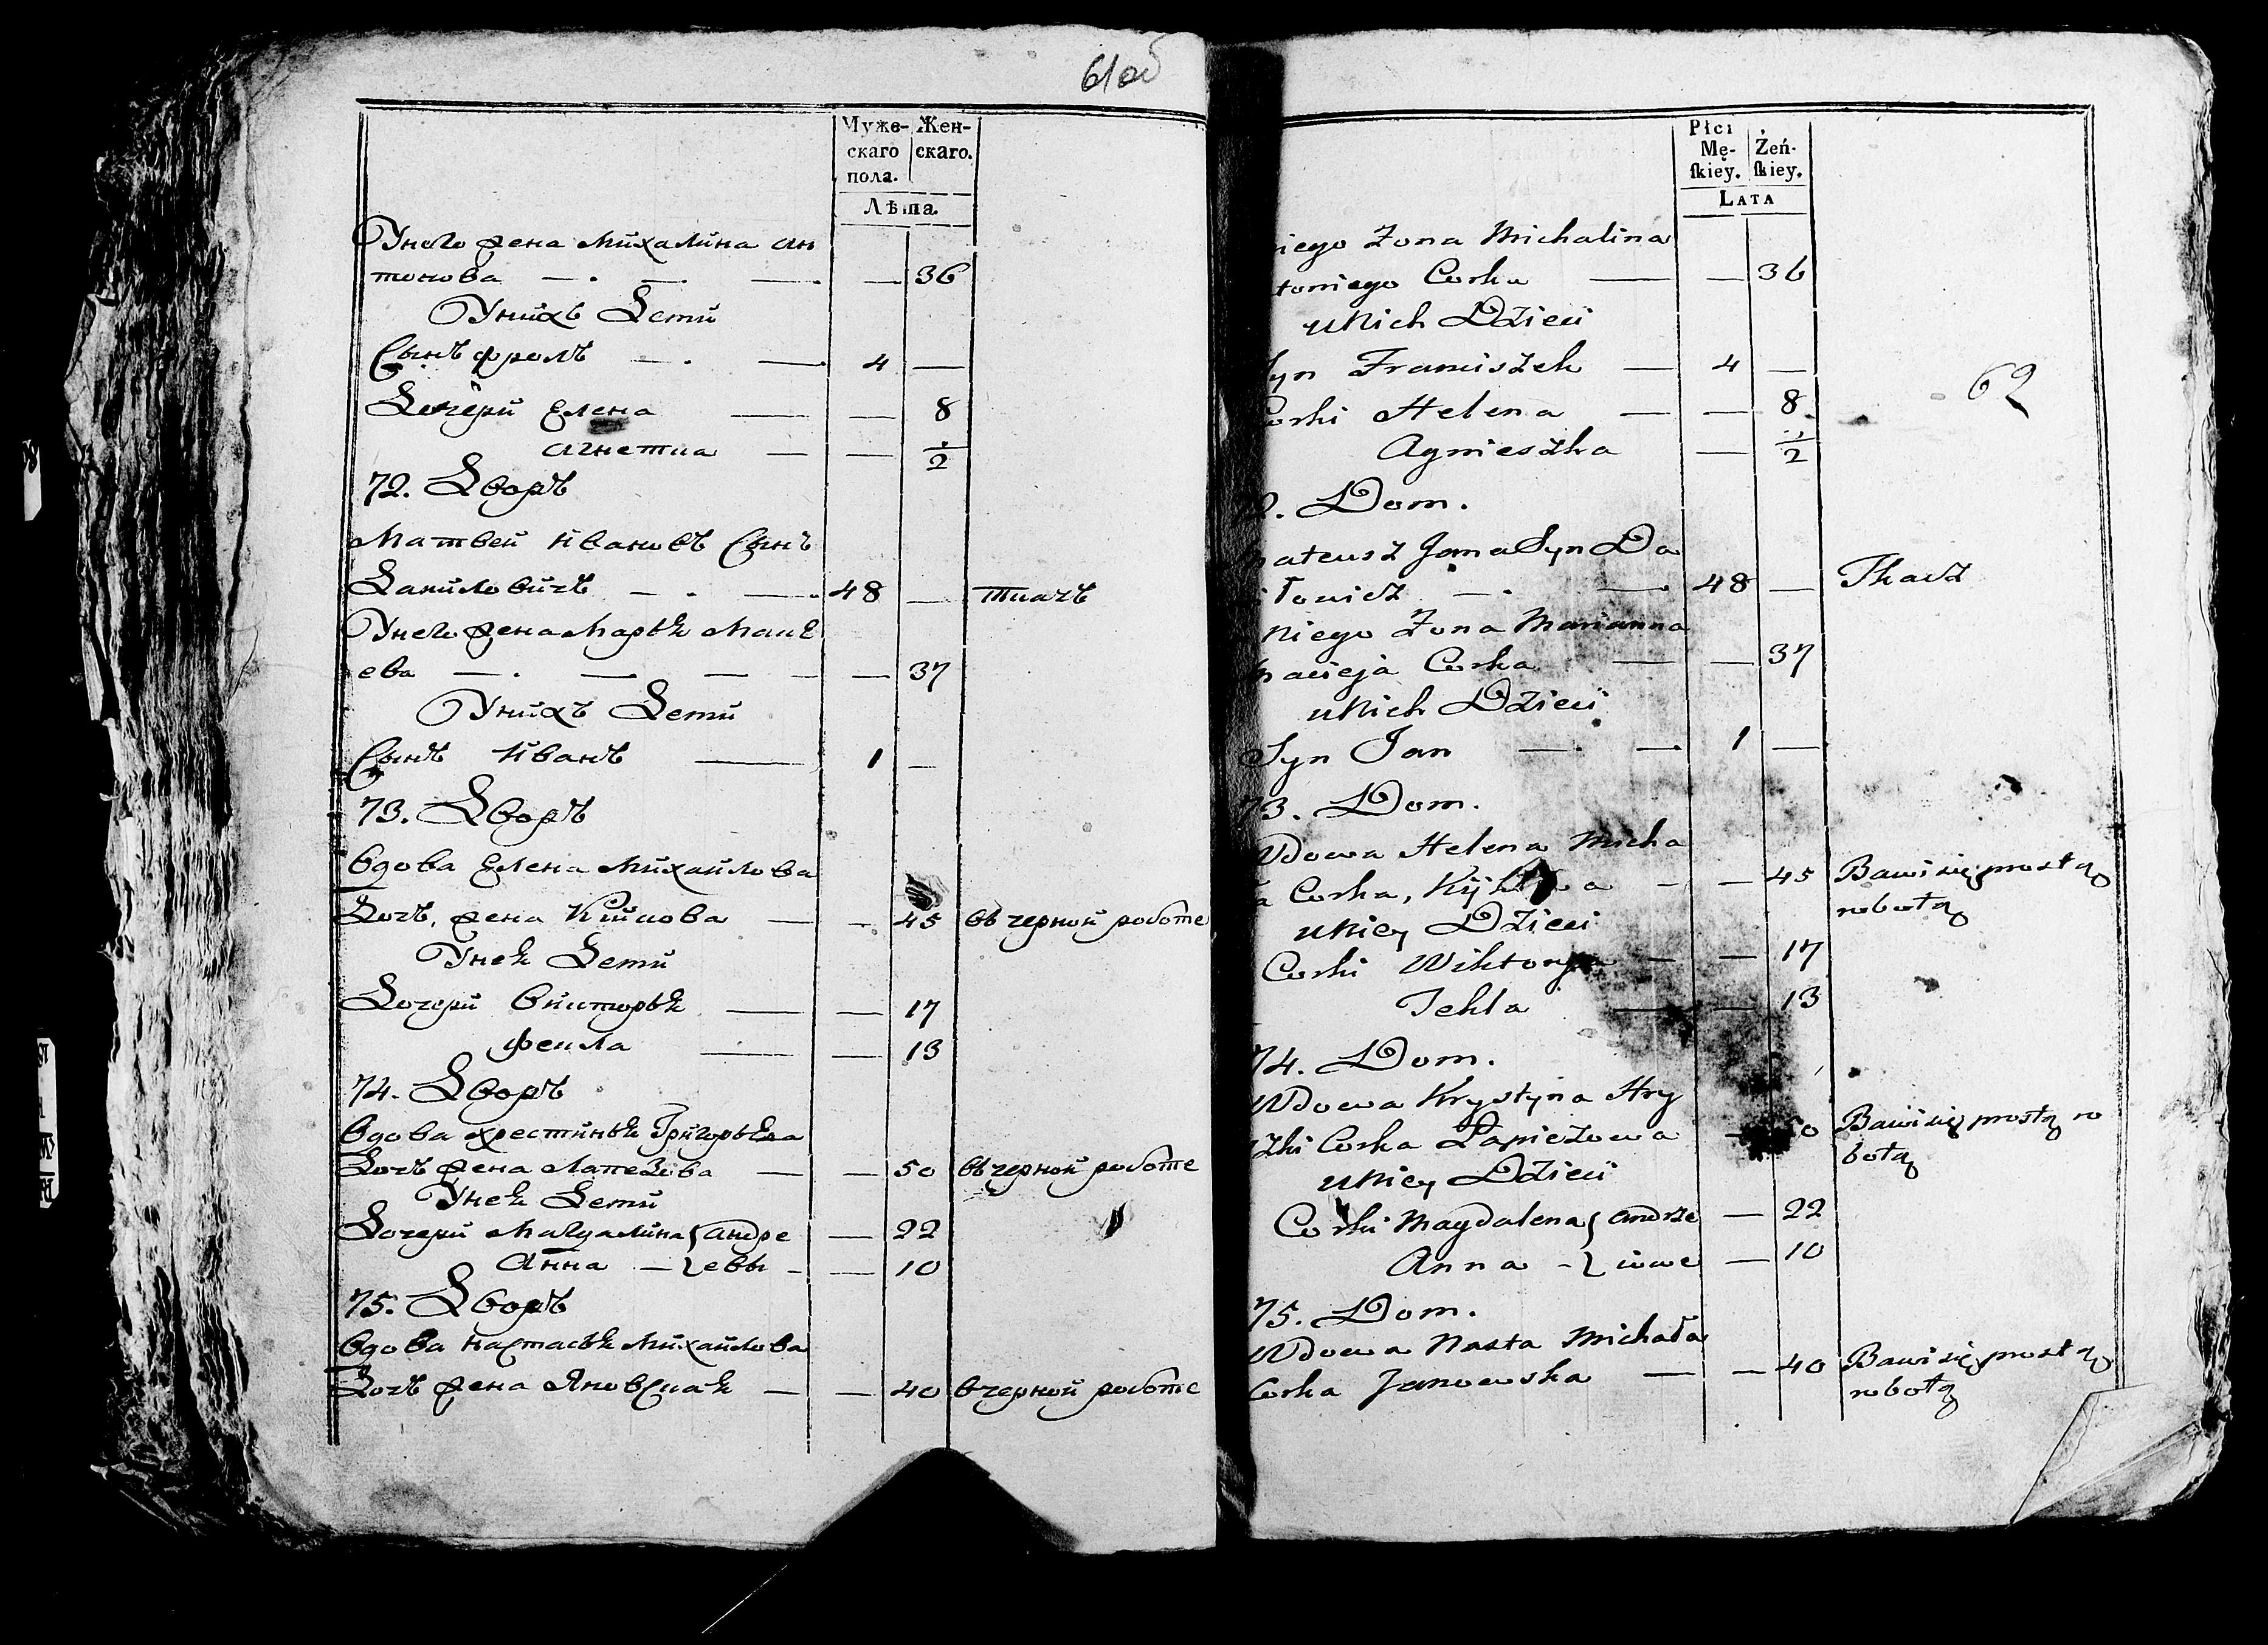 61об
Муже- Жен-
скаго скаго.
пола.
Лѣта.
Унего жена Михалина Ан
тонова — . — — — 36
Унихъ Дети
Сынъ Фролъ — . — 4 —
Дочери Елена — — 8
Агнетка — — 1/2
72. Дворъ
Матвей Ивановъ Сынъ
Даниловичъ — . — 48 — ткачъ
Унего жена Марья Макѣ
ева — . — — — — 37
Унихъ Дети
Сынъ Иванъ — 1 —
73. Дворъ
Вдова Елена Михайлова
Дочь, жена Кійкова — — 45 въ черной работе
Унея Дети
Дочери Викторья — — 17
Фекла — — 13
74. Дворъ
Вдова Хрестинья Григорьева
Дочь жена Лапезова — — 50 въ черной работе
Унея Дети
Дочери Магдалина { Андре — 22
Анна — } евы - — 10
75. Дворъ
Вдова Настасья Михайлова
Дочь жена Яновская — — 40 в черной работе
Płci
Mę- Żeń-
ſkiey. ſkiey.
LATA
niego Zona Michalina
toniego Corka — — 36
unich Dzieci
Syn Franciszek — 4 —
62
Corki Helena — — 8
Agnieszka — 1/2
2. Dom.
Mateusz Jana Syn Da
iłowicz — . — 48 — Tkacz
niego Zona Marianna
Macieja Corka — — 37
unich Dzieci
Syn Jan — . — 1 —
73. Dom.
Wdowa Helena Micha
a Corka, - — 45 Bawi się prostą
robotą
uniey Dzieci
Corki Wiktorya — — 17
Tekla — — 13
74. Dom.
Wdowa Krystyna Hry
zki Corka Łapiezowa — 50 Bawi się prostą ro
botą
uniey Dzieci
Corki Magdalena { Andrze — 22
Anna - } iowe — 10
75. Dom.
Wdowa Nasta Michała
Corka Janowska — — 40 Bawi się prostą
robotą